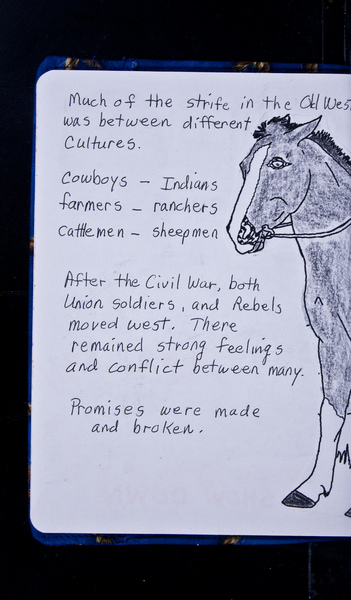 Much of the strife in the Old Wes
was between different
Cultures.
Cowboys - Indians
farmers - ranchers
Cattlemen - sheepmen
After the Civil War, both
Union soldiers, and Rebels
moved west. There
remained strong feelings
and conflict between many.
Promises were made
and broken.